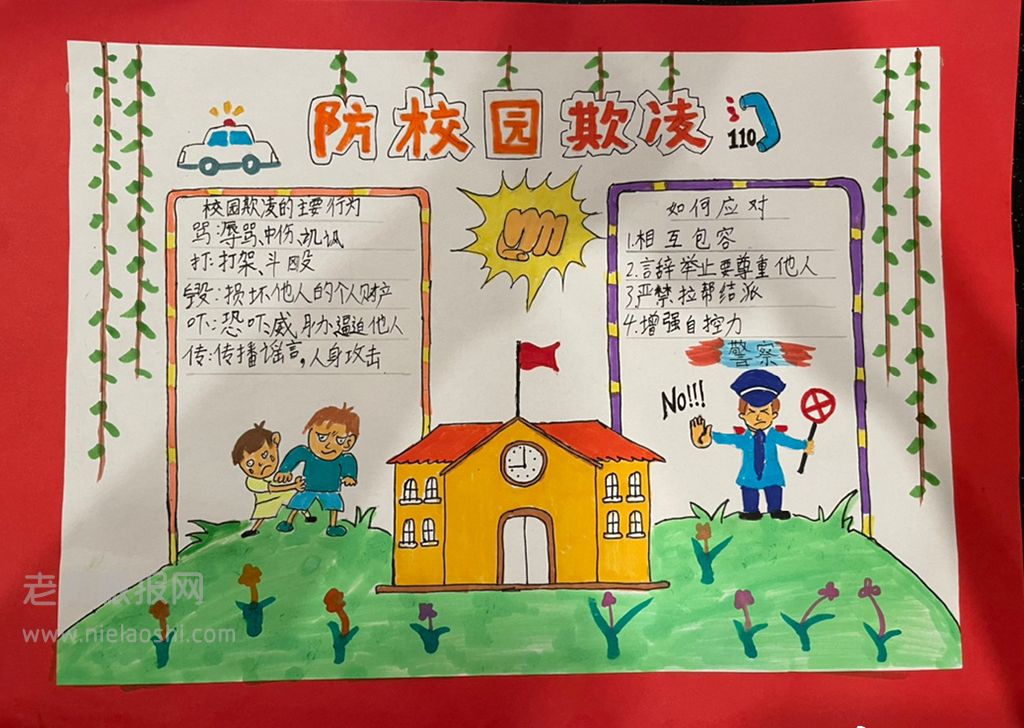 防校园欺凌
110
校园欺凌的主要行为
骂:辱骂、中伤、讥讽
打:打架、斗殴
毁:损坏他人的个人财产
吓:恐吓、威胁、逼迫他人
传:传播谣言,人身攻击
如何应对
1.相互包容
2.言辞举止要尊重他人
3.严禁拉帮结派
4.增强自控力
警察
No!!!
www.nielaoshi.com